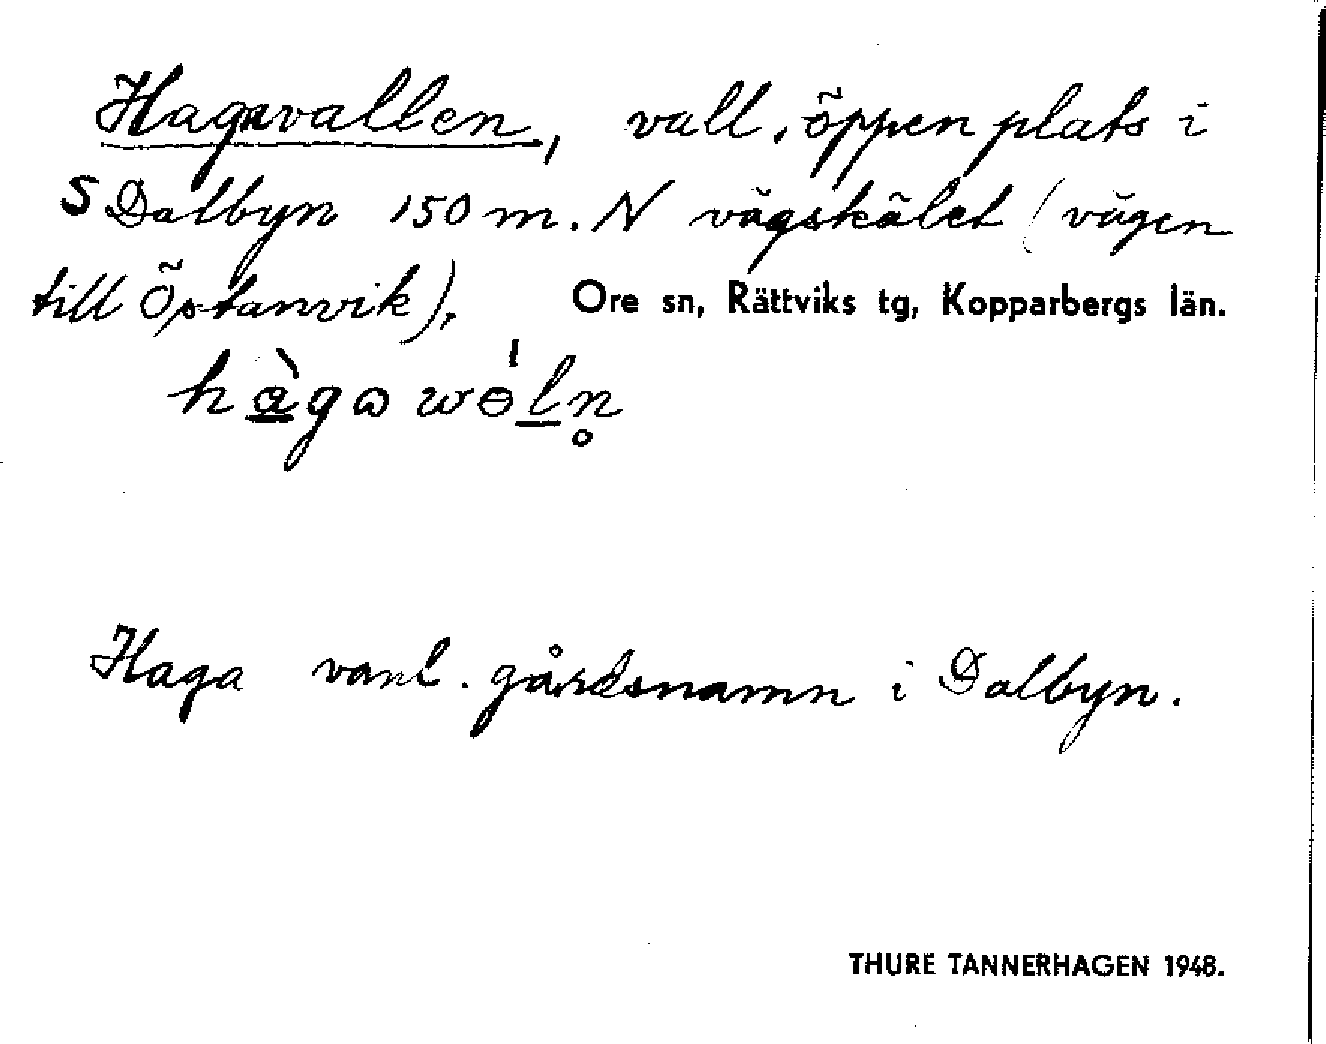 Hagavallen, vall, öppen plats i
S Dalbyn 150 m. N vägskälet (vägen
till Östanvik). Ore sn, Rättviks tg, Kopparbergs län.
Haga vanl. gårdsnamn i Dalbyn.
THURE TANNERHAGEN 1948.